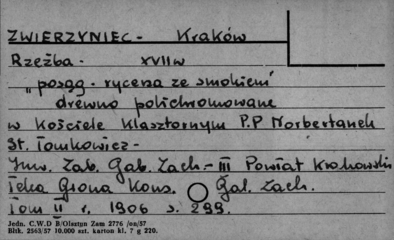 ZWIERZYNIEC - Kraków
Rzeźba - XVII w
"posąg - rycerza ze smokiem"
drewno polichromowane
w Kościele Klasztornym P.P Norbertanek
St. Tomkowicz -
Inw. Zab. Gal. Zach. - III Powiat Krakowski
Teka Grona Kons. Gal. Zach.
Tom II r. 1906 s. 299.
Jedn. C.W.D B/Olsztyn Zam 2776 /on/57
Bltk. 2563/57 10.000 szt. karton kl. 7 g 220.